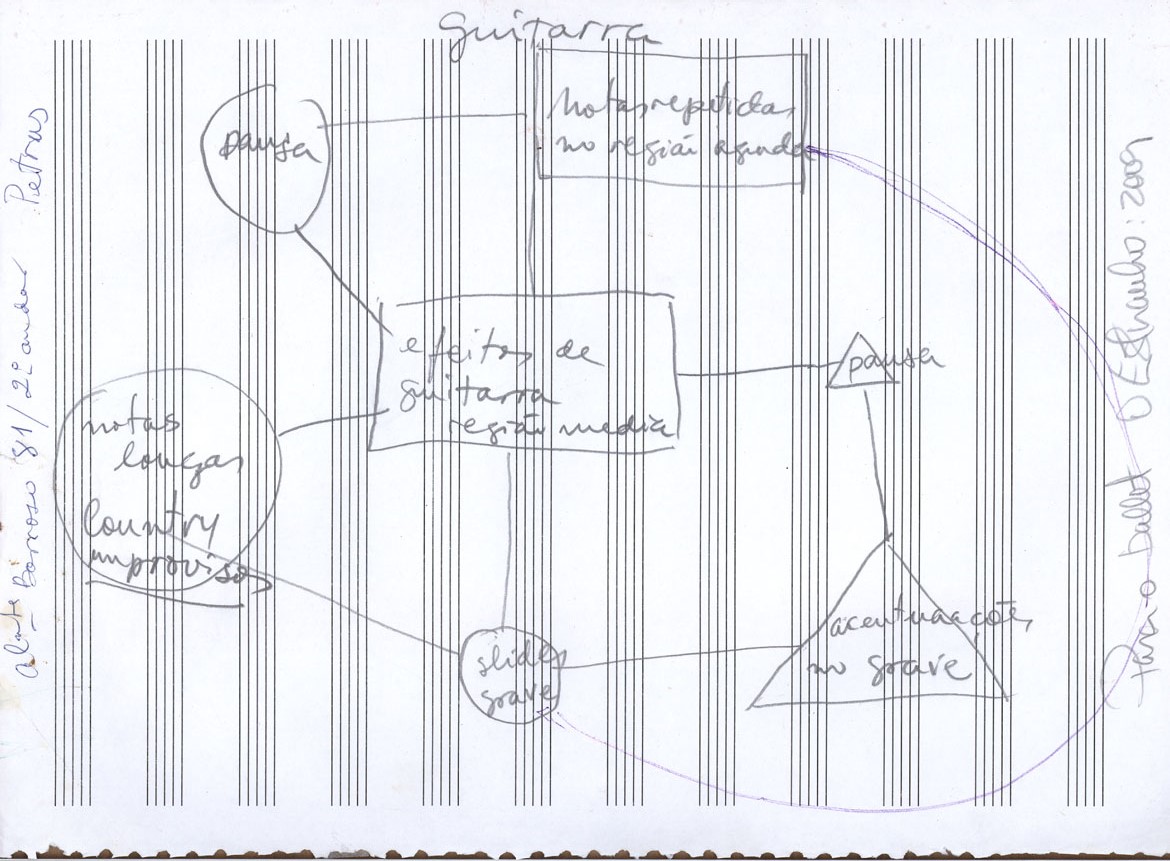 guitarra
notas repetidas
no região aguda
pausa
efeitos de
guitarra
região media
pausa
notas
longas
country
improvisos
acentuaações
no grave
slides
grave
Barroso 81/2º andar Petrus
Para o ballet O Estranho: 2009